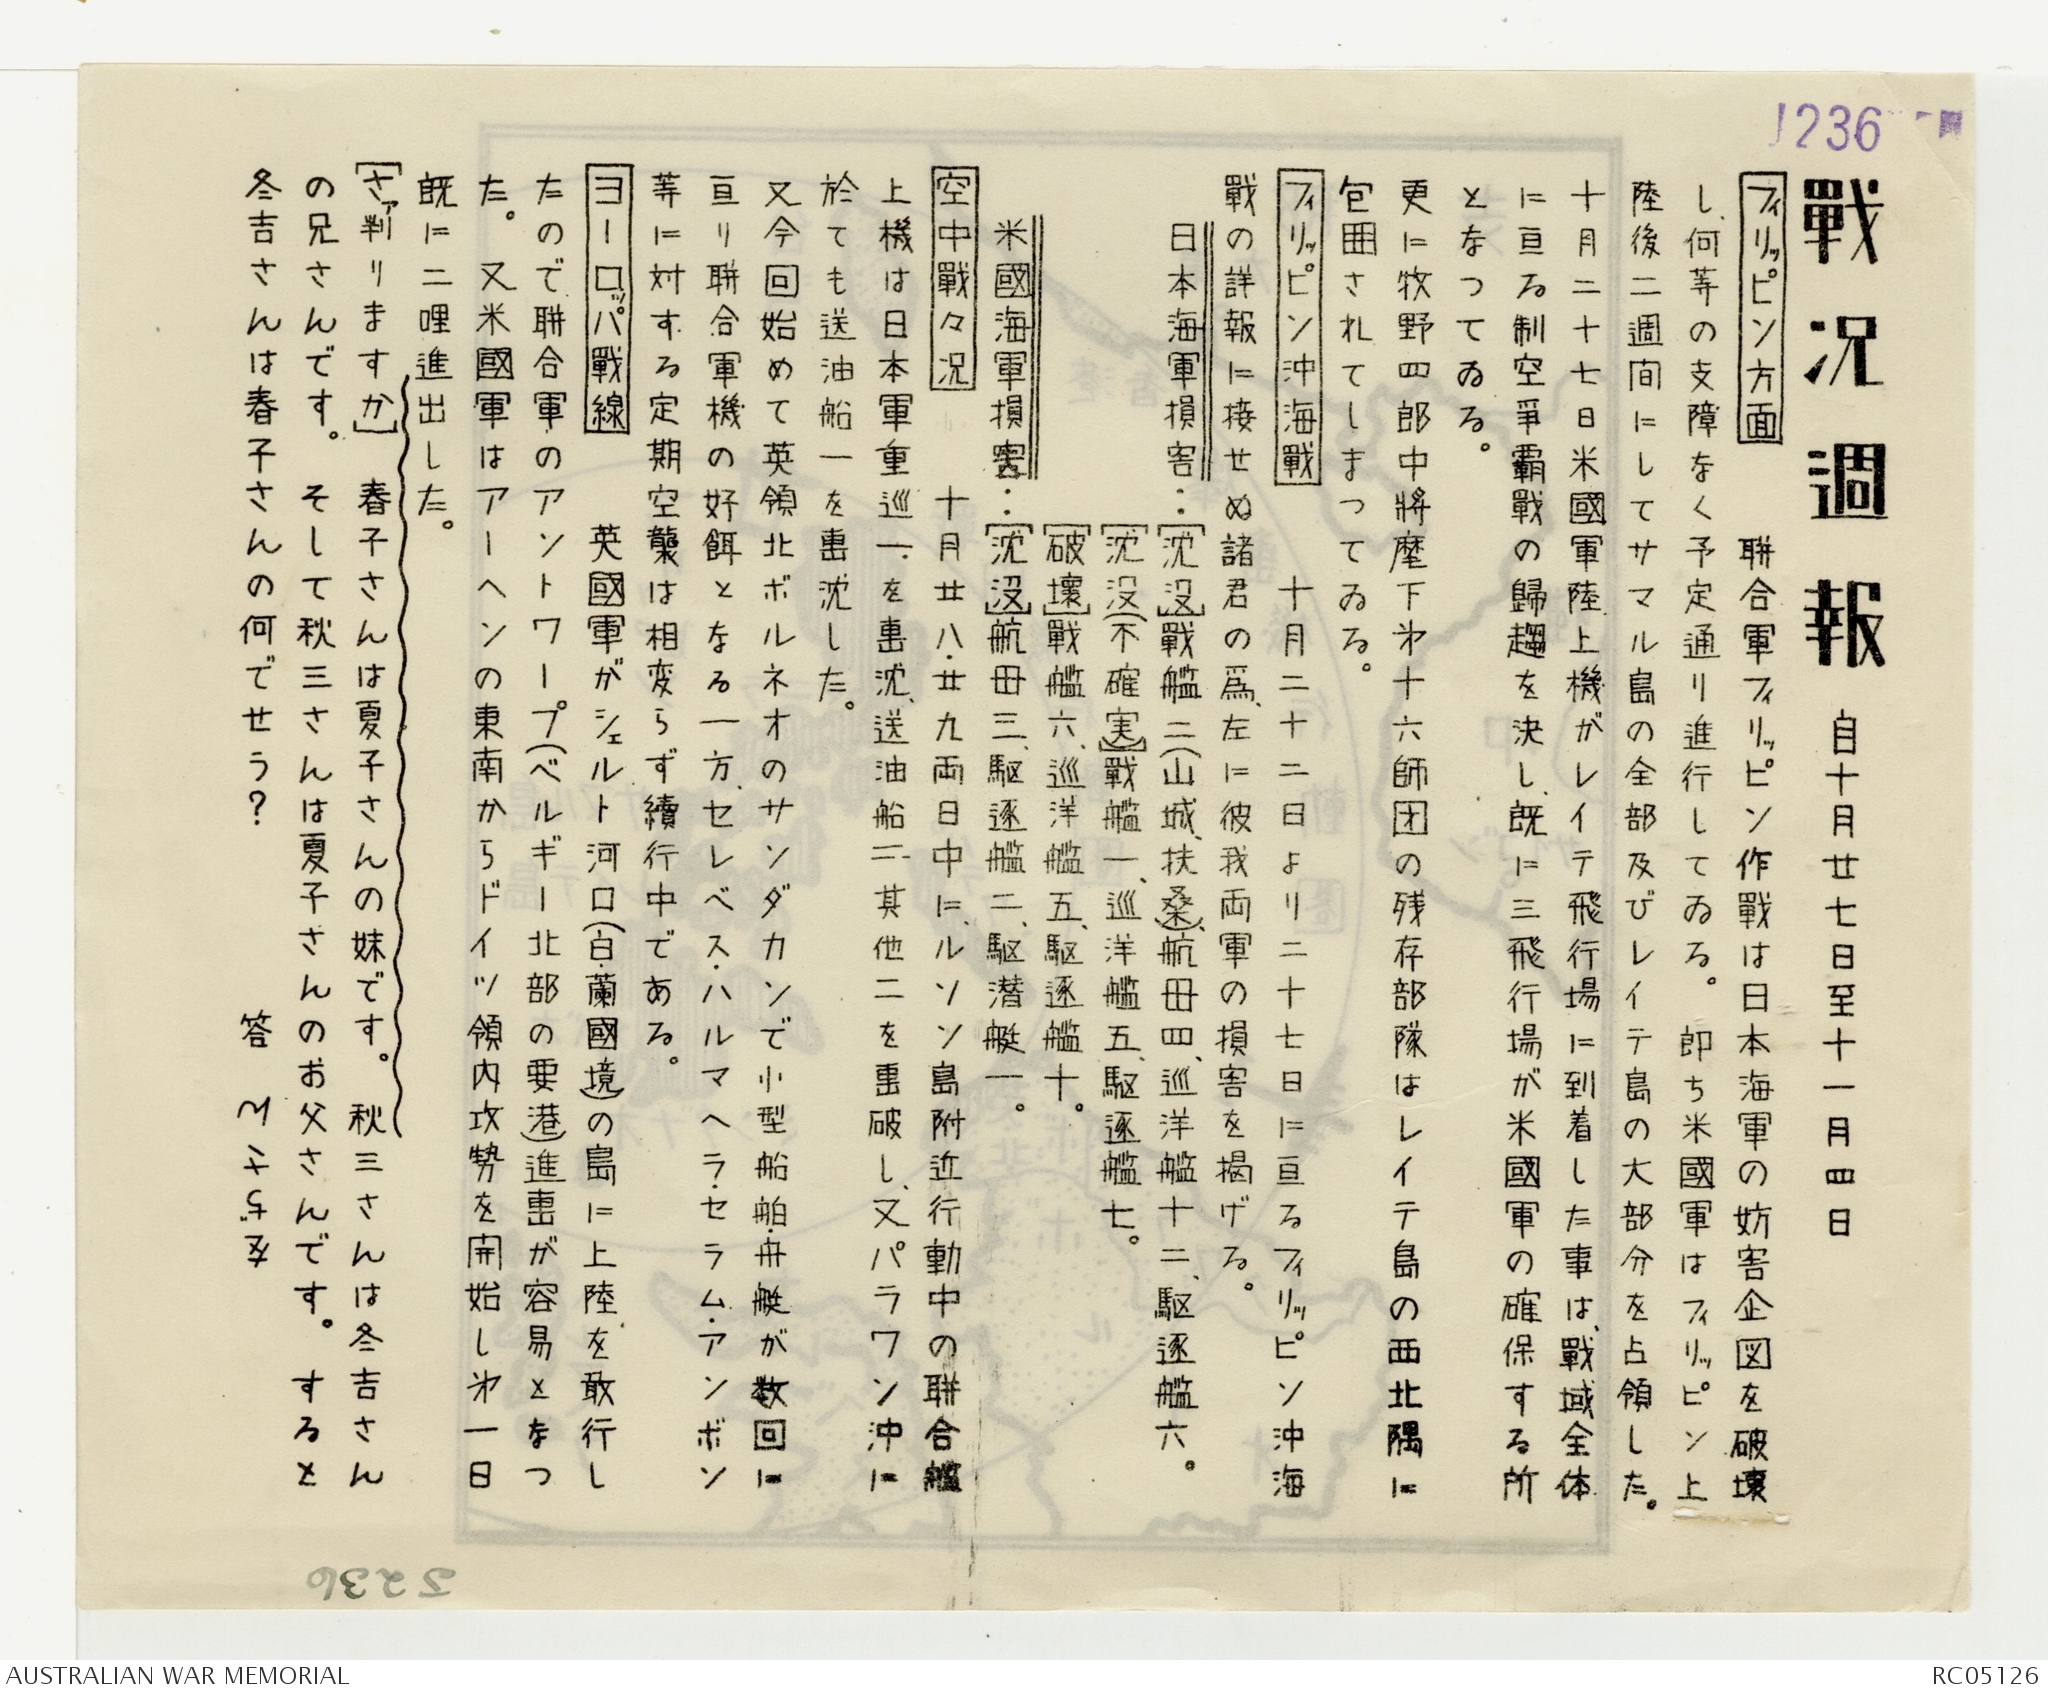 J236
戰況週報 自十月廿七日至十一月四日
フィリッピン方面 聯合軍フィリッピン作戰は日本海軍の妨害企図を破壊
し、何等の支障なく予定通り進行してゐる。即ち米國軍はフィリッピン上
陸後二週间にしてサマル島の全部及びレイテ島の大部分を占領した。
十月二十七日米國軍陸上機がレイテ飛行場に到着した事は、戰域全体
に亘る制空爭覇戰の歸趨を決し、既に三飛行場が米國軍の確保する所
となつてゐる。
更に牧野四郎中將麾下㐧十六師団の残存部隊はレイテ島の西北隅に
包囲されてしまつてゐる。
フィリッピン沖海戰 十月二十二日より二十七日に亘るフィリッピン沖海
戰の詳報に接せぬ諸君の爲、左に彼我両軍の損害を揭げる。
日本海軍損害：[沈没]戰艦二(山城、扶桑)、航母四、巡洋艦十二、駆逐艦六。
[沈没(不確実)]戰艦一、巡洋艦五、駆逐艦七。
[破壊]戰艦六、巡洋艦五、駆逐艦十。
米國海軍損害：[沈没]航母三、駆逐艦二、駆潜艇一。
空中戰々況 十月廿八・廿九両日中に、ルソン島附近行動中の聯合艦
上機は日本軍重巡一、を轟沈、送油船二、其他二を轟破し、又パラワン沖に
於ても送油船一を轟沈した。
又今回始めて英領北ボルネオのサンダカンで小型船舶・舟艇が数回に
亘り聯合軍機の好餌となる一方、セレベス・ハルマヘラ・セラム・アンボン
等に対する定期空襲は相変らず續行中である。
ヨーロッパ戰線 英國軍がシェルト河口(白・蘭國境)の島に上陸を敢行し
たので聯合軍のアントワープ(ベルギー北部の要港)進轟が容易となつ
た。又米國軍はアーヘンの東南からドイツ領内攻勢を開始し㐧一日
既に二哩進出した。
[さァ判りますか] 春子さんは夏子さんの妹です。秋三さんは冬吉さん
の兄さんです。そして秋三さんは夏子さんのお父さんです。すると
冬吉さんは春子さんの何でせう？
答 ヲヂサン
J236
AUSTRALIAN WAR MEMORIAL
RC05126